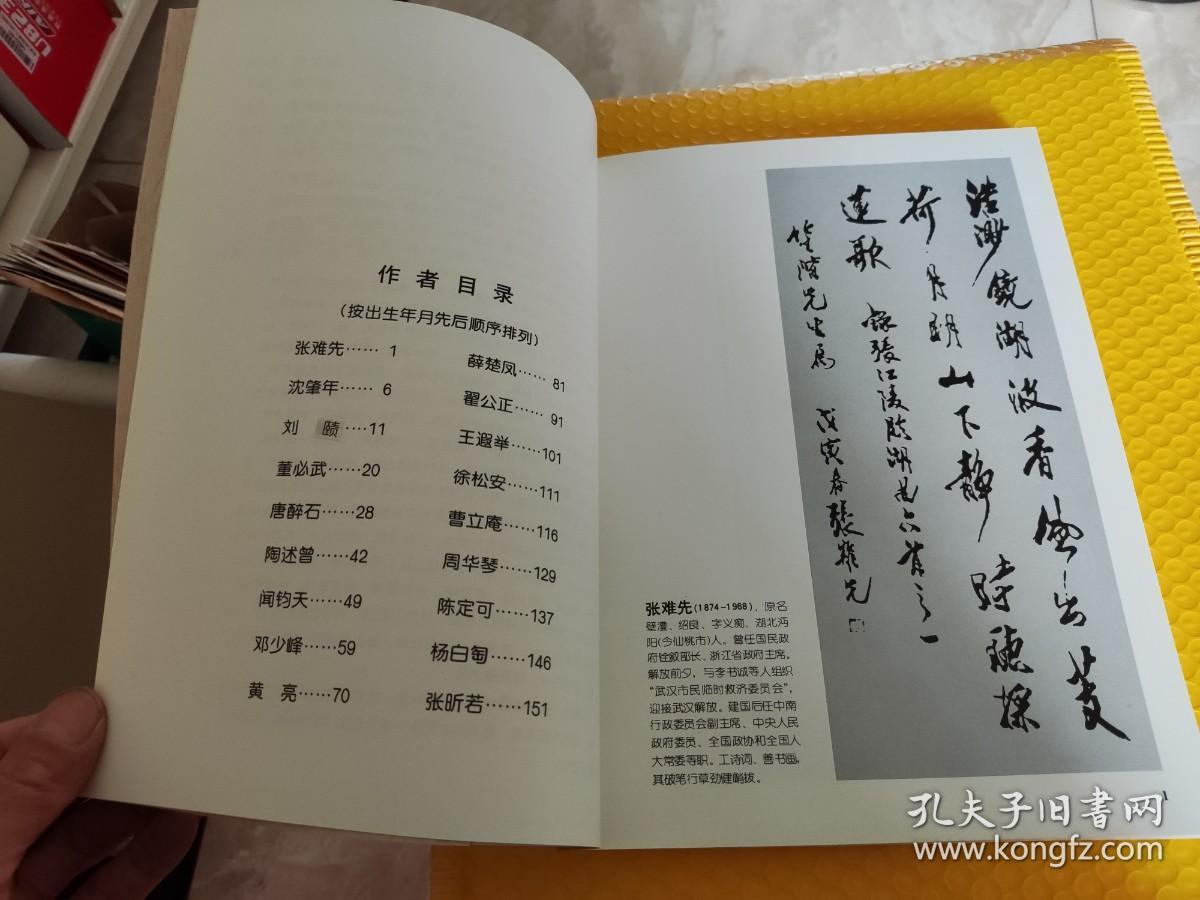 作者目录
(按出生年月先后顺序排列)
张难先……1
沈肇年……6
刘 赜……11
董必武……20
唐醉石……28
陶述曾……42
闻钧天……49
邓少峰……59
黄 亮……70
薛楚凤……81
翟公正……91
王遐举……101
徐松安……111
曹立庵……116
周华琴……129
陈定可……137
杨白匋……146
张昕若……151
浩渺镜湖波香风出芰
荷月明山下静时听采
莲歌 录张江陵临湖曲六首之一
竺陵先生属 戊寅春张难先
张难先(1874-1968),原名
璧澧、绍良、字义痴,湖北沔
阳(今仙桃市)人。曾任国民政
府铨叙部长、浙江省政府主席。
解放前夕,与李书诚等人组织
“武汉市民临时救济委员会”,
迎接武汉解放。建国后任中南
行政委员会副主席、中央人民
政府委员、全国政协和全国人
大常委等职。工诗词、善书画,
其破笔行草劲健峭拔。
1
孔夫子旧书网
www.kongfz.com